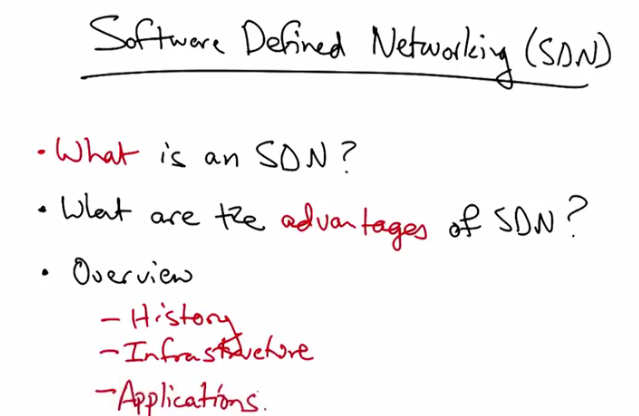 Software Defined Networking (SDN)
• What is an SDN?
• What are the advantages of SDN?
• Overview
– History
– Infrastructure
– Applications.